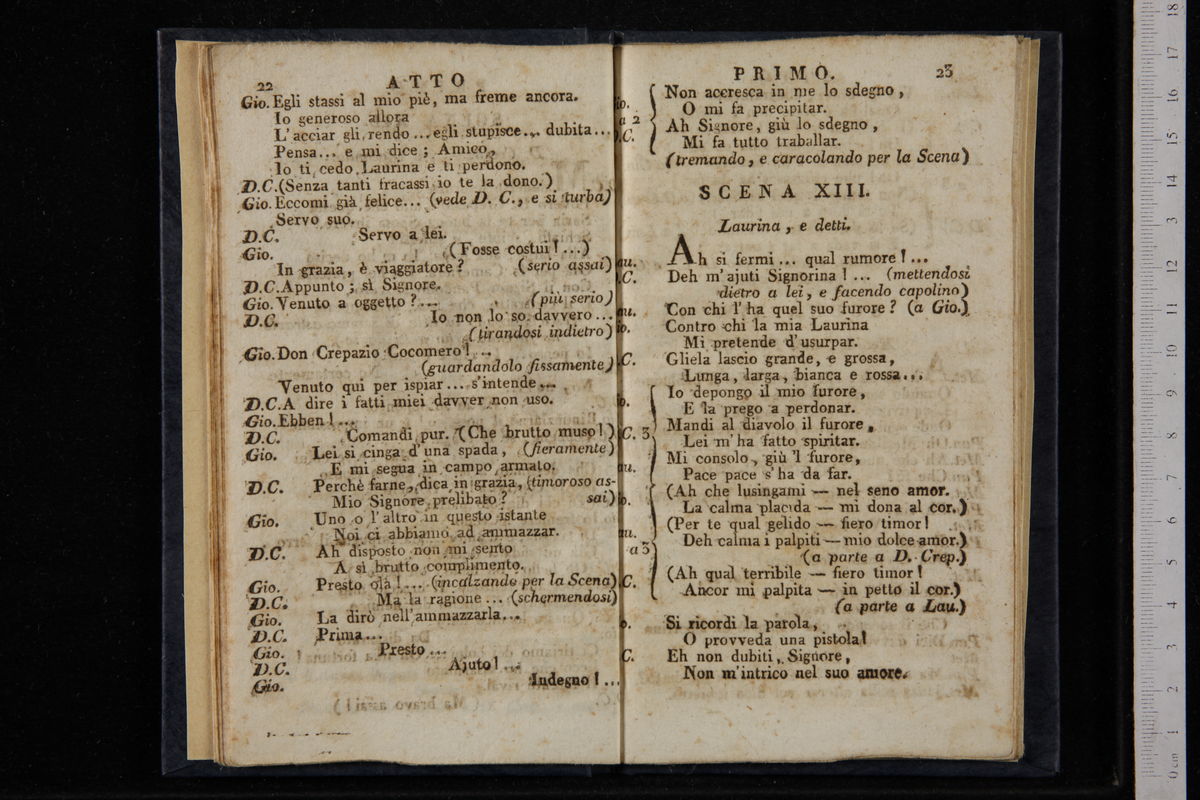 22 ATTO
Gio. Egli stassi al mio piè, ma freme ancora.
Io generoso allora
L'acciar gli rendo ... egli stupisce ... dubita ...
Pensa ... e mi dice ; Amico,
Io ti cedo Laurina e ti perdono.
D.C. (Senza tanti fracassi io te la dono.)
Gio. Eccomi già felice ... (vede D. C., e si turba)
Servo suo.
D.C. Servo a lei.
Gio. (Fosse costui! ...)
In grazia, è viaggiatore? (serio assai)
D.C. Appunto; sì Signore.
Gio. Venuto a oggetto? ... (più serio)
D.C. Io non lo so davvero ...
(tirandosi indietro)
Gio. Don Crepazio Cocomero! ...
(guardandolo fissamente)
Venuto qui per ispiar ... s'intende ...
D.C. A dire i fatti miei davver non uso.
Gio. Ebben! ...
D.C. Comandi pur. (Che brutto muso!)
Gio. Lei si cinga d'una spada, (fieramente)
E mi segua in campo armato.
D.C. Perchè farne, dica in grazia, (timoroso as-
Mio Signore prelibato? sai)
Gio. Uno o l'altro in questo istante
Noi ci abbiamo ad ammazzar.
D.C. Ah disposto non mi sento
A sì brutto complimento.
Gio. Presto olà! ... (incalzando per la Scena)
D.C. Ma la ragione ... (schermendosi)
Gio. La dirò nell'ammazzarla ...
D.C. Prima ...
Gio. Presto ...
D.C. Ajuto! ...
Gio. Indegno! ...
PRIMO. 23
io. Non accresca in me lo sdegno,
O mi fa precipitar.
a 2
.C. Ah Signore, giù lo sdegno,
Mi fa tutto traballar.
(tremando, e caracolando per la Scena)
SCENA XIII.
Laurina, e detti.
au. Ah si fermi ... qual rumore! ...
.C. Deh m'ajuti Signorina! ... (mettendosi
dietro a lei, e facendo capolino)
au. Con chi l'ha quel suo furore? (a Gio.)
io. Contro chi la mia Laurina
Mi pretende d'usurpar.
.C. Gliela lascio grande, e grossa,
Lunga, larga, bianca e rossa ...
o. Io depongo il mio furore,
E la prego a perdonar.
C. 3 Mandi al diavolo il furore,
Lei m'ha fatto spiritar.
au. Mi consolo, giù 'l furore,
Pace pace s'ha da far.
o. (Ah che lusingami — nel seno amor.
La calma placida — mi dona al cor.)
au. (Per te qual gelido — fiero timor!
a 3 Deh calma i palpiti — mio dolce amor.)
(a parte a D. Crep.)
C. (Ah qual terribile — fiero timor!
Ancor mi palpita — in petto il cor.)
(a parte a Lau.)
o. Si ricordi la parola,
O provveda una pistola!
C. Eh non dubiti, Signore,
Non m'intrico nel suo amore.